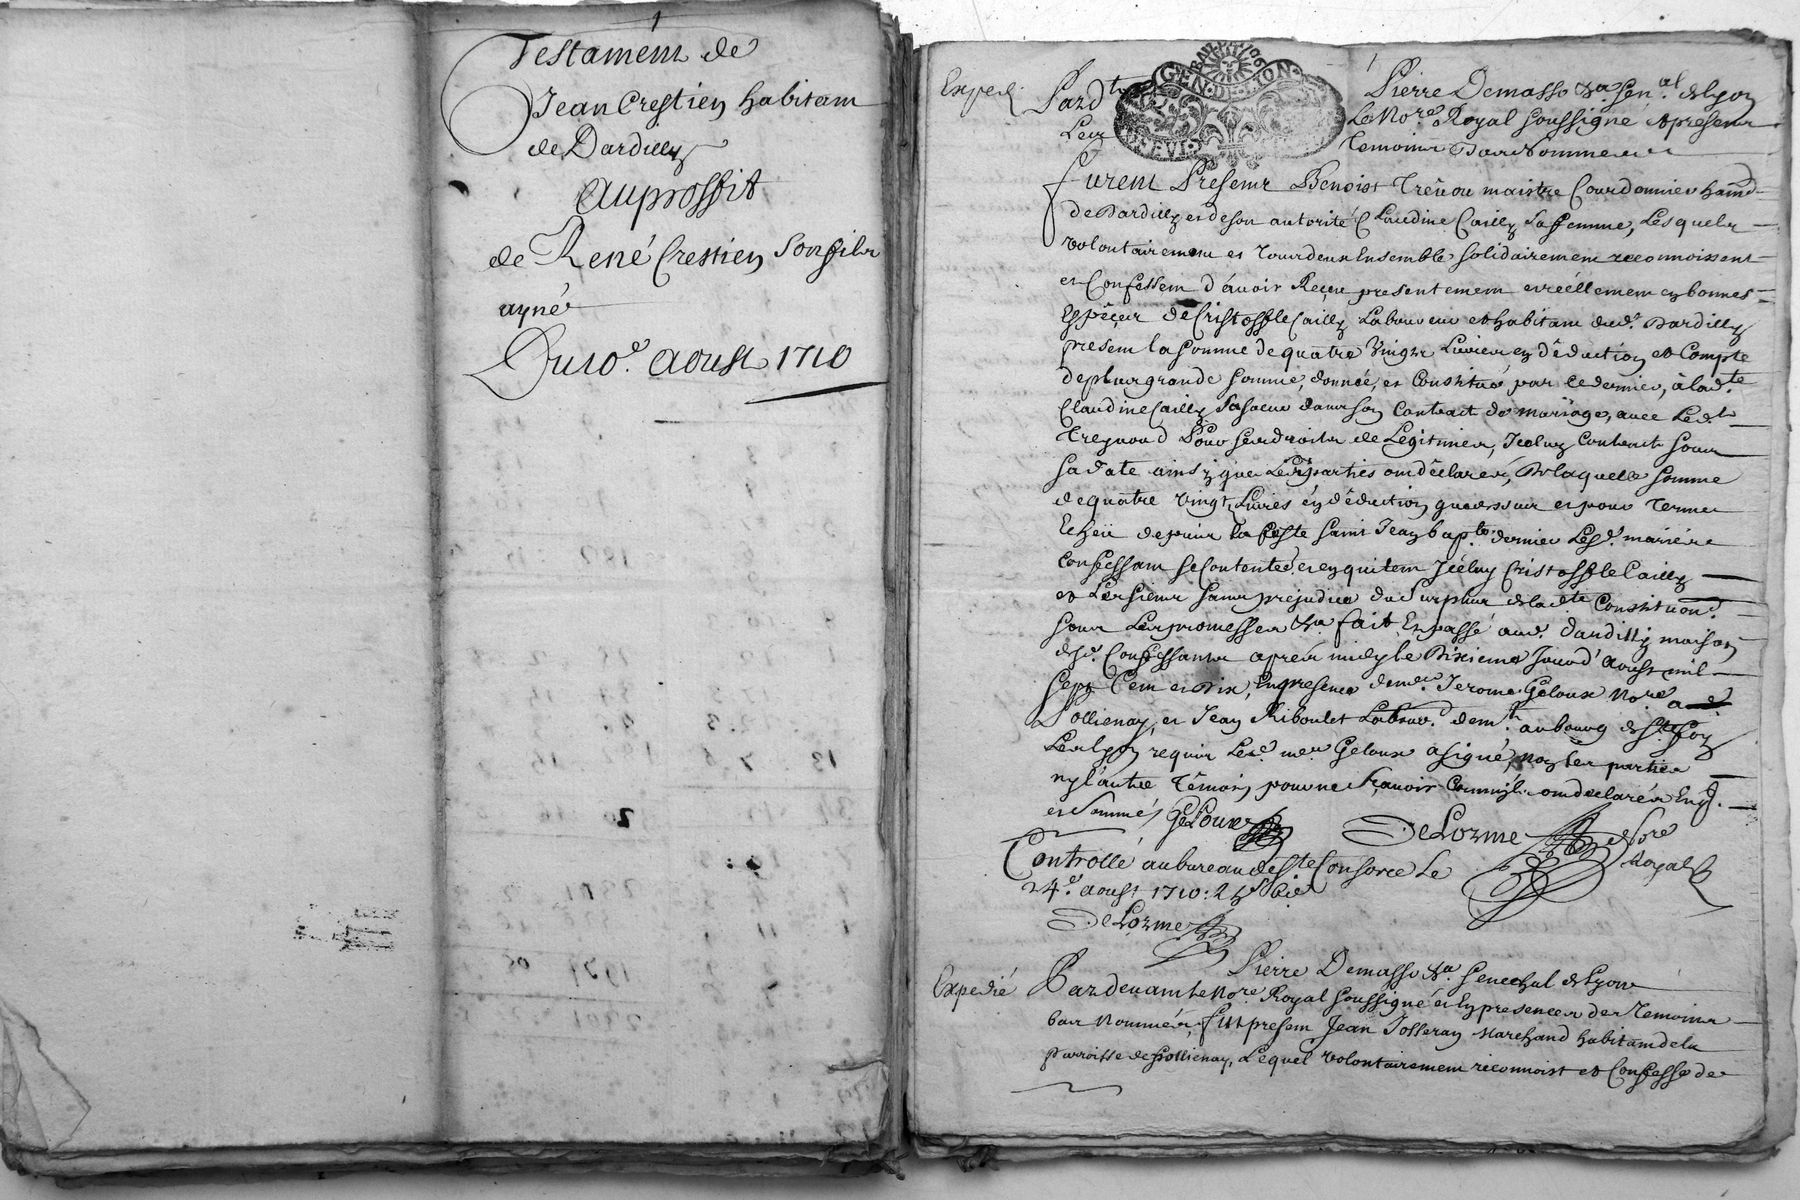 Testament de
Jean Crestien habitant
de Dardilly
Au proffit
de René Crestien son fils
ayné
Du 10e. Aoust 1710
Expedié
Pard.t
GEN·DE·LION
Pierre Demasso &a. Sen.al de Lyon
Le No.re Royal soussigné et presents
Temoins
furent Presents Benoist Trênou maistre Courdonnier ha
de Dardilly et de son autorité Claudine Cailly sa femme, Lesquels
volontairement et tous deux Ensemble solidairement reconnoissent
et Confessent d'avoir Reçeu presentement et réellement en bonnes
Espêçes de Cristoffle Cailly Laboureur et habitant dud. Dardilly
present la somme de quatre vingts Livres en dêduction et Compte
de plus grande somme, donnée, et Constitué par ce dernier, à lad.te
Claudine Cailly sa soeur dans son Contract de mariage, avec Led.t
Treynoud Pour ses droits de Legitimes, Iceluy Contract sous
sa date ainsy que Les parties ont dêclarés, De laquelle somme
de quatre vingt Livres en dêduction que dessus et pour Terme
Echeu depuis la feste saint Jean bap.te dernier Lesd. mariés
confessant se Contenter et en quitent Icéluy Cristoffle Cailly
et Les siens sans prejudice du surplus de lad.te Constitution
sous Les promesses &a. fait et passé aud. Dardilly maison
desd. Confessants apres midy le Dixieme Jour d'Aoust mil
sept Cent et Dix, En presence de me. Jerome Geloux No.re
Pollienay, et Jean Riboulet Labour. dem.t au bourg de S.te foy
Les Lyon requis Led. me. Geloux a signé, non les parties
ny l'autre Têmoin pour ne sçavoir Comme ils ont declarés Enq.
et sommés Geloux DeLorme No.re
Royal
Controllé au bureau de S.te Consorce Le
24e. aoust 1710:
DeLorme
Pierre Demasso &a. Senechal de Lyon
Expedié Pardevant le No.re Royal soussigné et En presences des Temoins
bas Nommés, fut present Jean Josseran Marchand habitant de la
parroisse de Pollienay, Lequel volontairement reconnoist et Confesse de